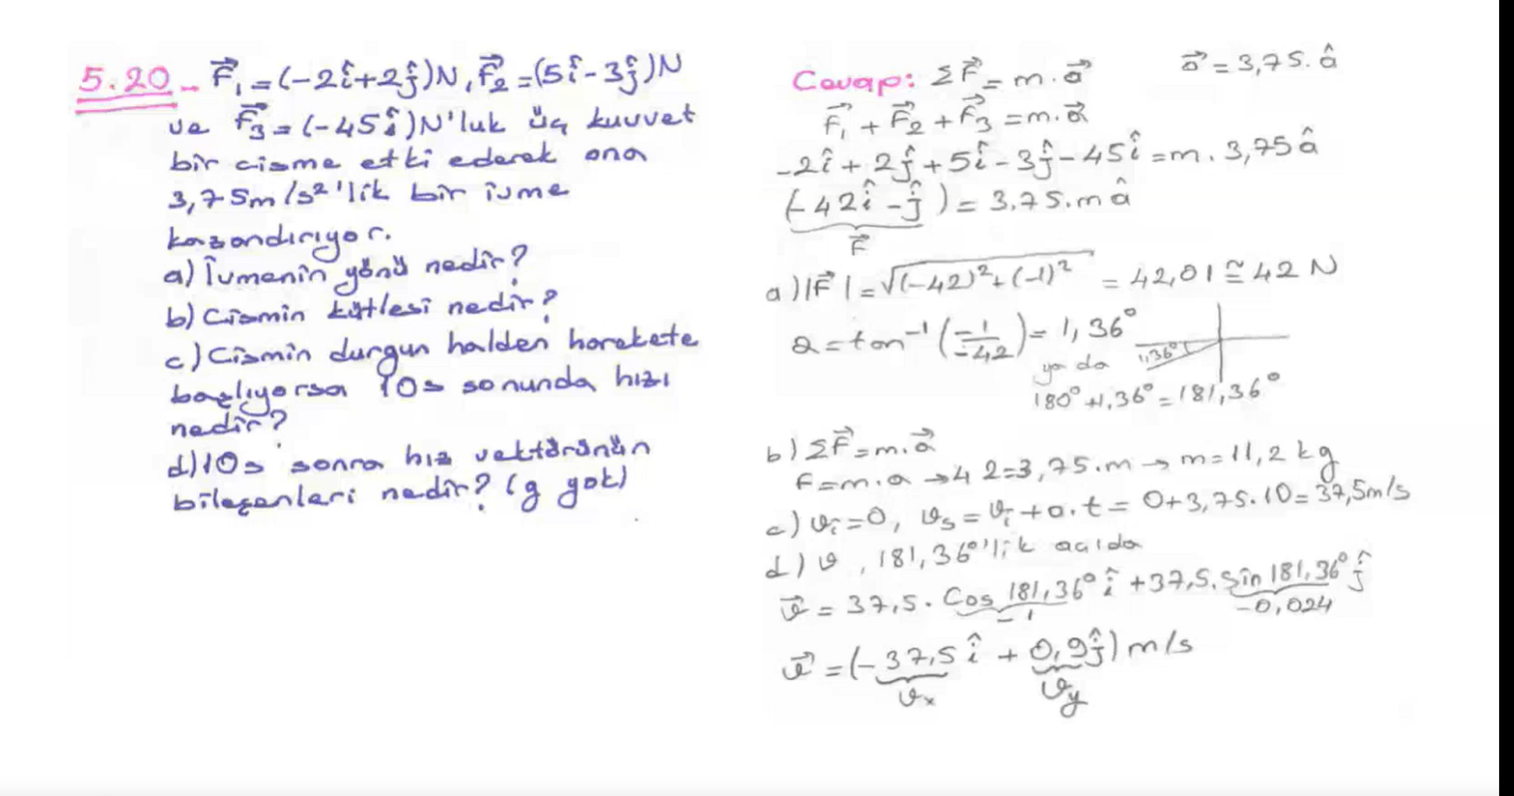 5.20_ F⃗₁=(-2î+2ĵ)N, F⃗₂=(5î-3ĵ)N
ve F⃗₃=(-45î)N'luk üç kuvvet
bir cisme etki ederek ona
3,75m/s²'lik bir ivme
kazandırıyor.
a) İvmenin yönü nedir?
b) Cismin kütlesi nedir?
c) Cismin durgun halden harekete
başlıyorsa 10s sonunda hızı
nedir?
d) 10s sonra hız vektörünün
bileşenleri nedir? (g yok)
Cevap: ΣF⃗=m.a⃗
a⃗=3,75.â
F⃗₁+F⃗₂+F⃗₃=m.a⃗
-2î+2ĵ+5î-3ĵ-45î=m.3,75â
(-42î-ĵ)=3.75.mâ
F⃗
a) |F⃗|=√(-42)²+(-1)² = 42,01≅42 N
a=tan⁻¹(-1/-42)=1,36°
ya da
1,36°
180°+1,36°=181,36°
b) ΣF⃗=m.a⃗
F=m.a→42=3,75.m→m=11,2kg
c) ϑi=0, ϑs=ϑi+a.t=0+3,75.10=37,5m/s
d) ϑ, 181,36°'lik açıda
ϑ⃗=37,5.Cos 181,36°î+37,5.Sin 181,36°ĵ
-1
-0,024
ϑ⃗=(-37,5î+0,9ĵ)m/s
ϑx
ϑy